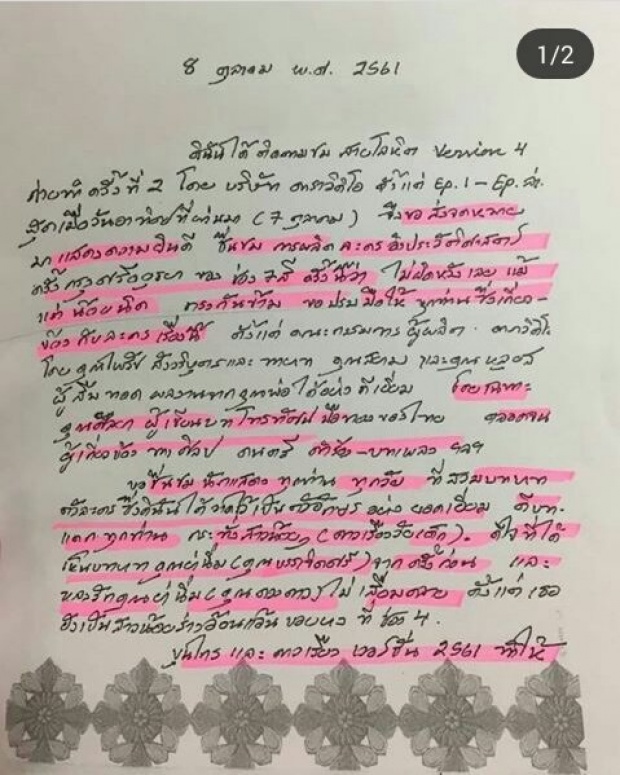 1/2
8 ตุลาคม พ.ศ. 2561
ดิฉันได้ติดตามชม สายโลหิต Version 4
ถ่ายทำครั้งที่ 2 โดย บริษัท ดาราวิดิโอ ตั้งแต่ Ep.1 - Ep. ล่า-
สุดเมื่อวันอาทิตย์ที่ผ่านมา (7 ตุลาคม) จึงขอส่งจดหมาย
มาแสดงความยินดี ชื่นชม การผลิตละครอิงประวัติศาสตร์
ครั้งกรุงศรีอยุธยา ของ ช่อง 7 สี ครั้งนี้ว่า ไม่ผิดหวังเลย แม้
แต่น้อยนิด ตรงกันข้าม ขอปรบมือให้ ทุกท่านซึ่งเกี่ยว-
ข้องกับละครเรื่องนี้ ตั้งแต่ คณะกรรมการ ผู้ผลิต ดาราวิดิโอ
โดย คุณไพรัช สังวริบุตร และ ทายาท คุณสยาม และคุณหลุยส์
ผู้สืบทอด ผลงานจากคุณพ่อได้อย่างดีเยี่ยม โดยเฉพาะ
คุณศัลยา ผู้เขียนบทโทรทัศน์มือทองของไทย ตลอดจน
ผู้เกี่ยวข้องทางศิลป ดนตรี คำร้อง-บทเพลง ฯลฯ
ขอชื่นชม นักแสดงทุกท่าน ทุกวัย ที่สวมบทบาท
ตัวละครซึ่งดิฉันได้วาดไว้เป็นตัวอักษร อย่างยอดเยี่ยม ตีบท-
แตกทุกท่าน กระทั่งสาวน้อย (ดาวเรืองวัยเด็ก) ดีใจที่ได้
เห็นบทบาทคุณย่านิ่ม (คุณบราลีตตรี) จากครั้งก่อน และ
หลงรักคุณย่านิ่ม (คุณดวงดาว) ไม่เสื่อมคลาย ตั้งแต่เธอ
ยังเป็นสาวน้อยร่างอ้อนแอ้นบอบบาง ที่ช่อง 4.
ขุนไกร และ ดาวเรือง เวอร์ชั่น 2561 ทำให้